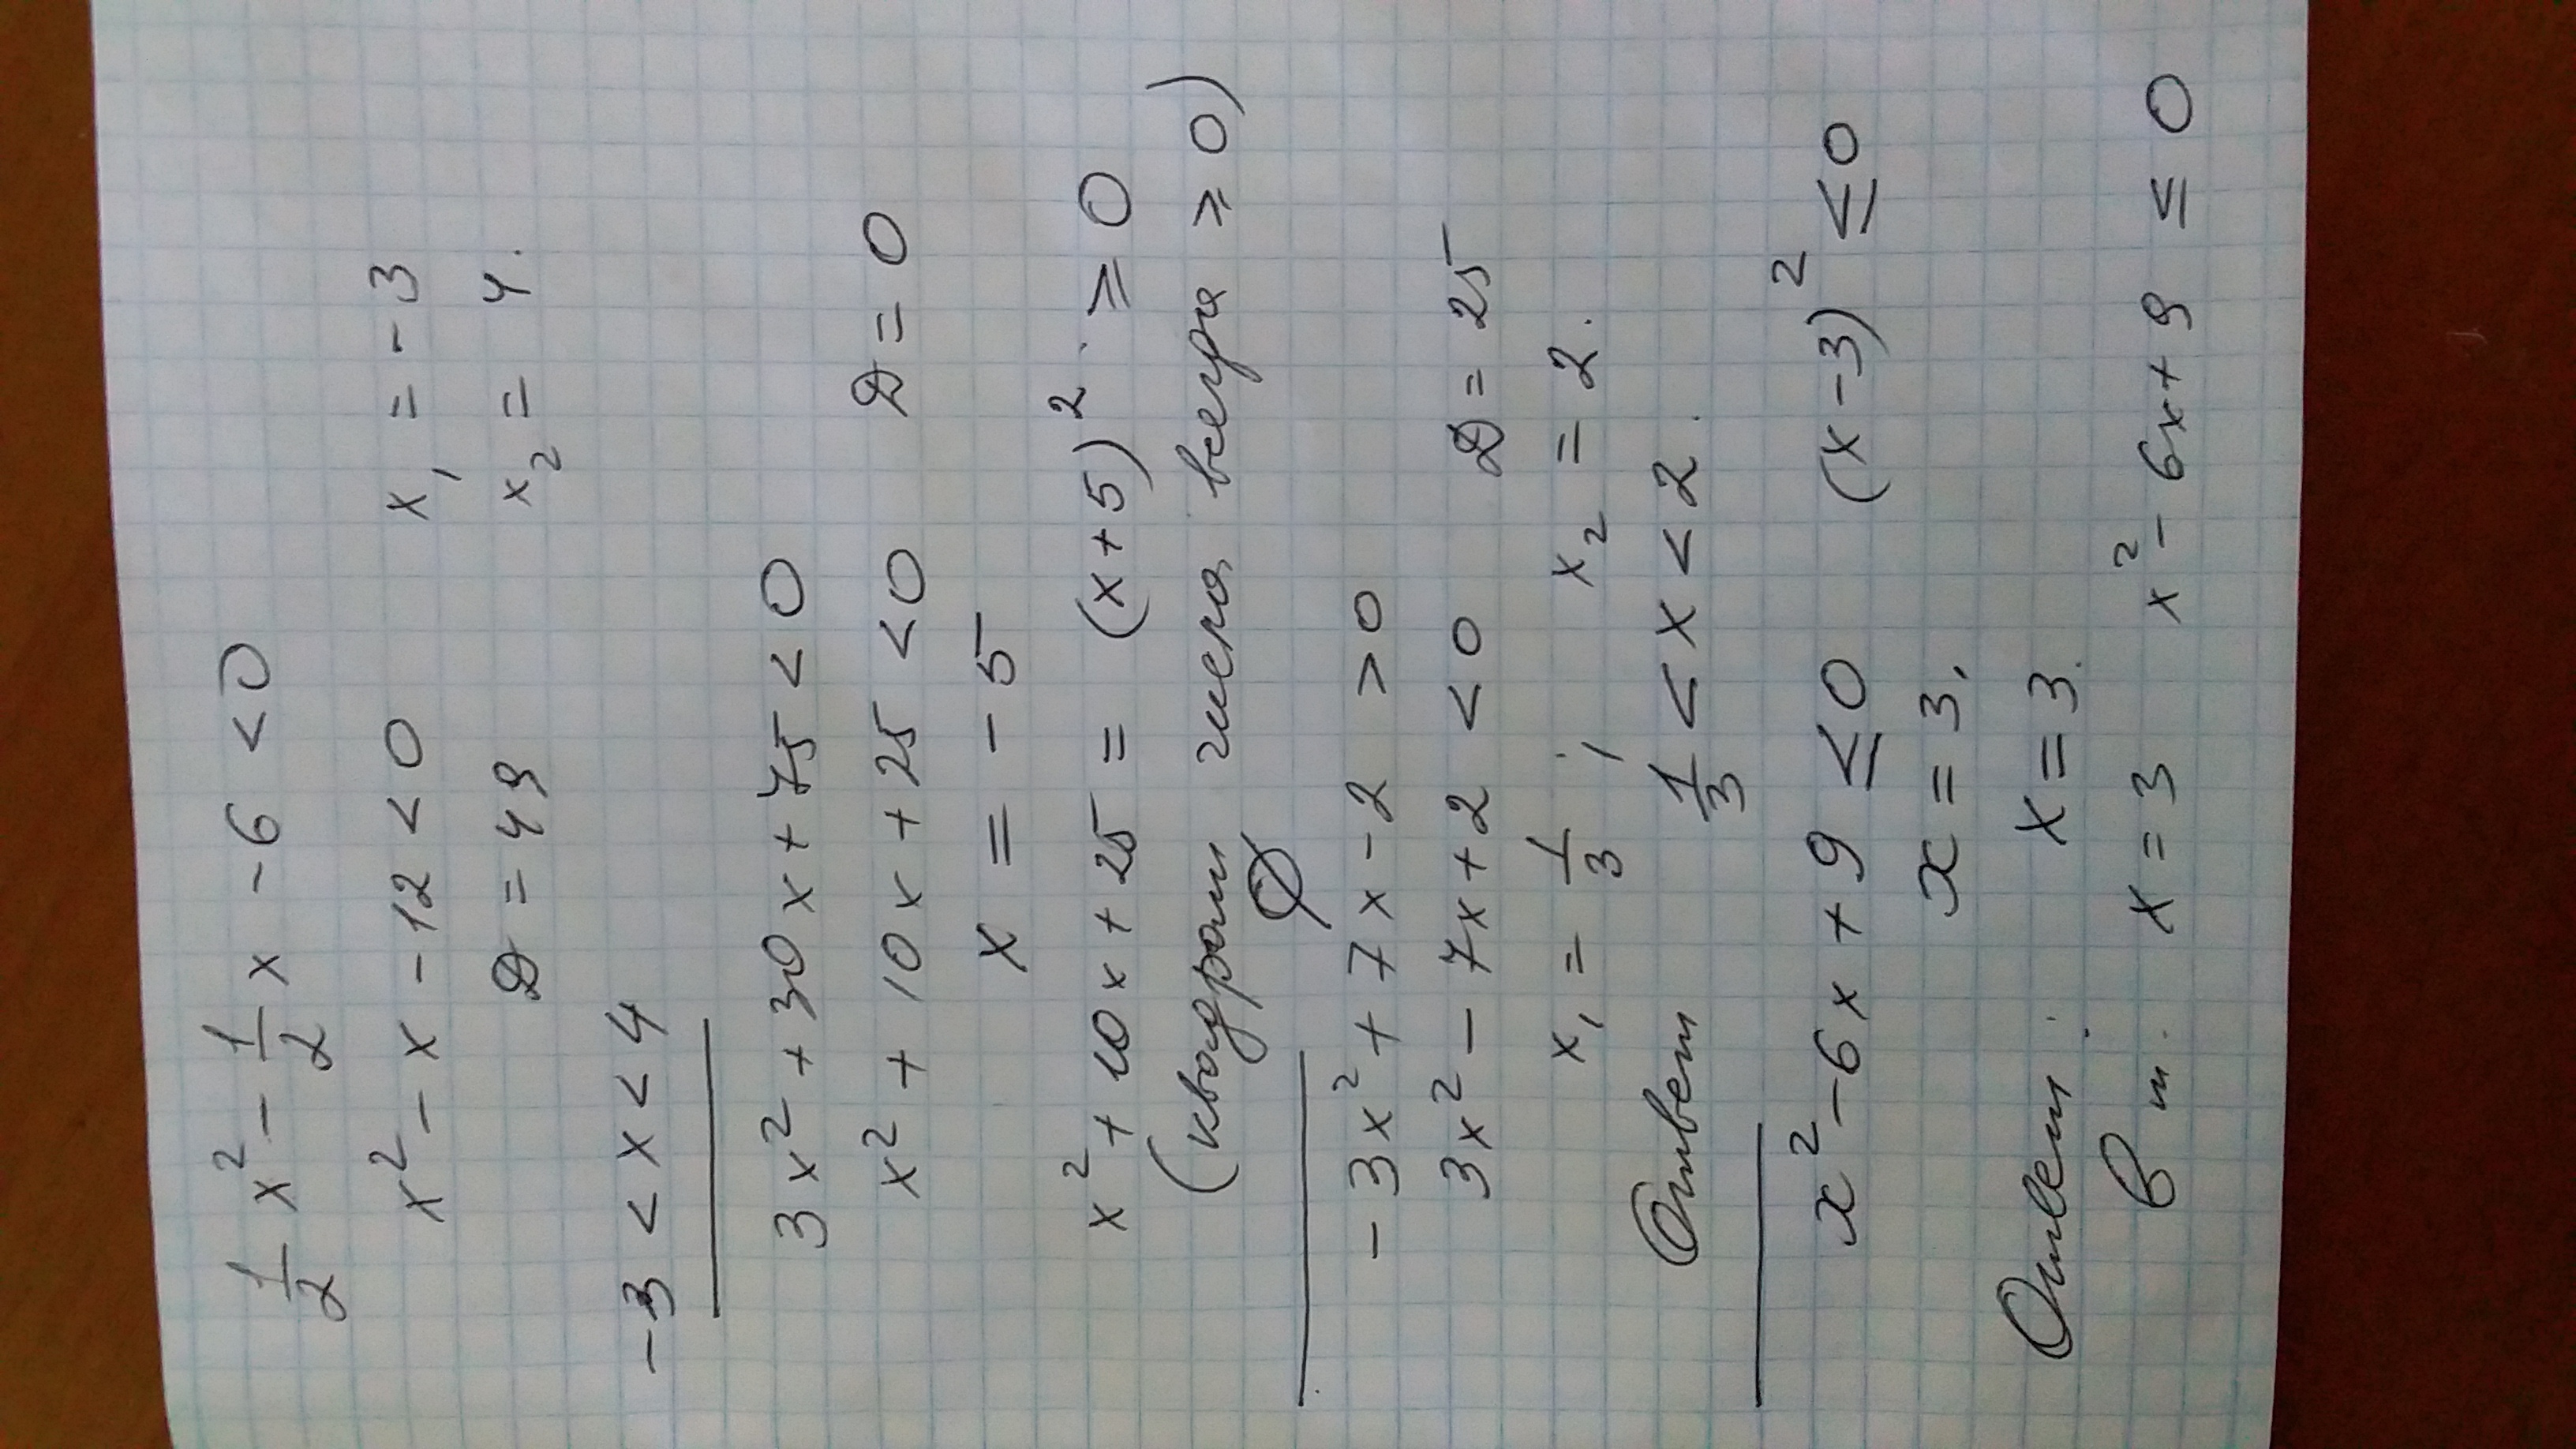 1/2 x² - 1/2 x - 6 < 0
x² - x - 12 < 0 x₁ = -3
D = 49 x₂ = 4.
-3 < x < 4
3x² + 30x + 75 < 0
x² + 10x + 25 < 0 D = 0
x = -5
x² + 10x + 25 = (x+5)² ≥ 0
(квадрат числа всегда ≥ 0)
∅
-3x² + 7x - 2 > 0
3x² - 7x + 2 < 0 D = 25
x₁ = 1/3 ; x₂ = 2.
Ответ 1/3 < x < 2.
x² - 6x + 9 ≤ 0 (x-3)² ≤ 0
x = 3,
Ответ: x = 3.
В т. x = 3 x² - 6x + 9 ≤ 0